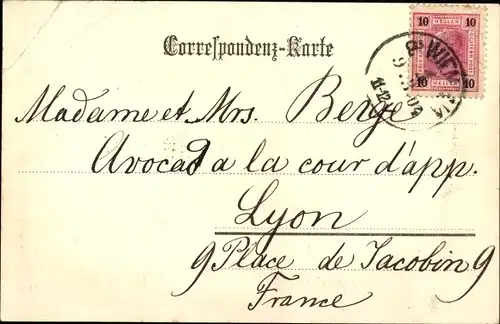 Correspondenz-Karte
10 HELLER 10
10 HELLER 10
WIEN
Madame et Mrs. Berge
Avocad a la cour d'app.
Lyon
9 Place de Jacobin 9
France